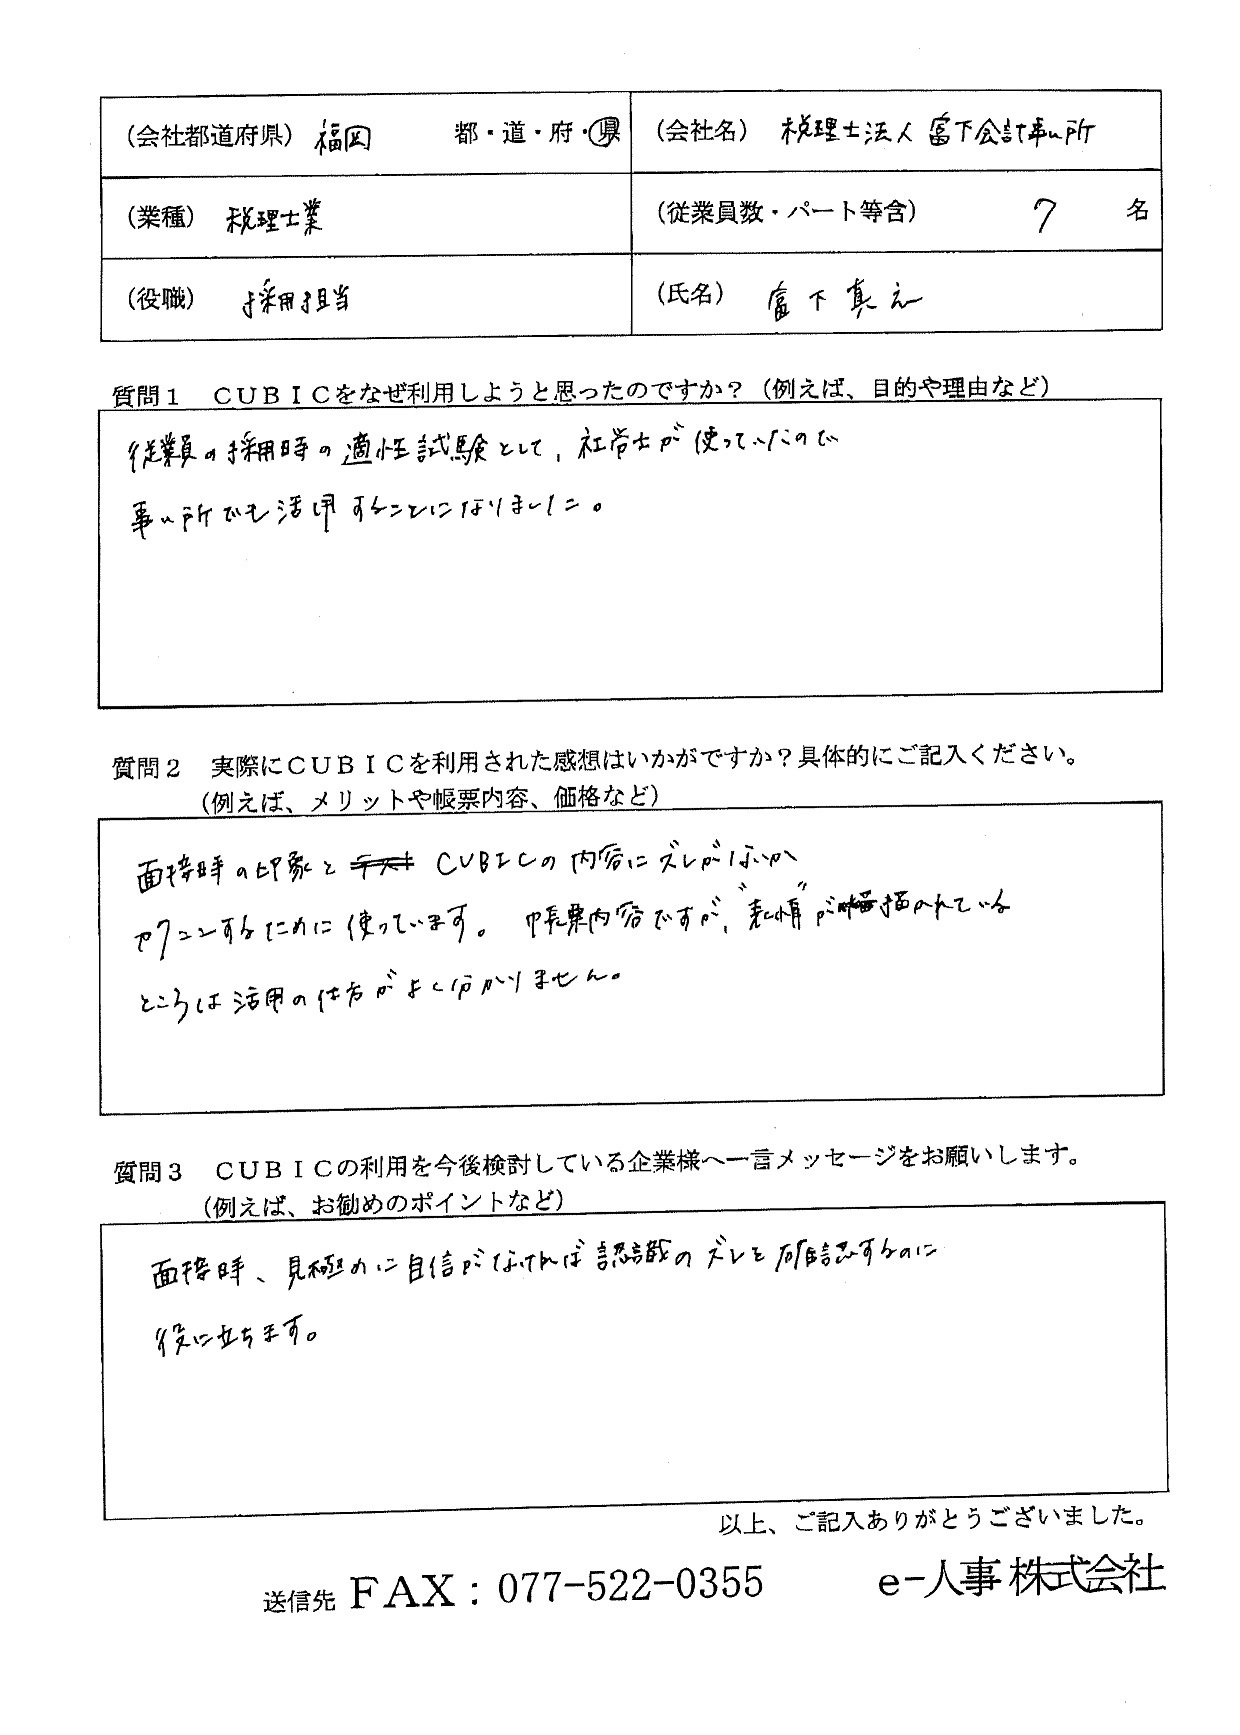 (会社都道府県) 福岡 都・道・府・県
(会社名) 税理士法人 富下会計事ム所
(業種) 税理士業
(従業員数・パート等含) 7 名
(役職) 採用担当
(氏名) 富下真
質問1 CUBICをなぜ利用しようと思ったのですか?(例えば、目的や理由など)
従業員の採用時の適性試験として、社労士が使っていたので
事ム所でも活用することになりました。
質問2 実際にCUBICを利用された感想はいかがですか?具体的にご記入ください。
(例えば、メリットや帳票内容、価格など)
面接時の印象と CUBICの内容にズレがないか
カクニンするために使っています。 帳票内容ですが、"表情"が描かれている
ところは活用の仕方がよく分かりません。
質問3 CUBICの利用を今後検討している企業様へ一言メッセージをお願いします。
(例えば、お勧めのポイントなど)
面接時、見極めに自信がなければ認識のズレを確認するのに
役に立ちます。
以上、ご記入ありがとうございました。
送信先 FAX:077-522-0355 e-人事 株式会社